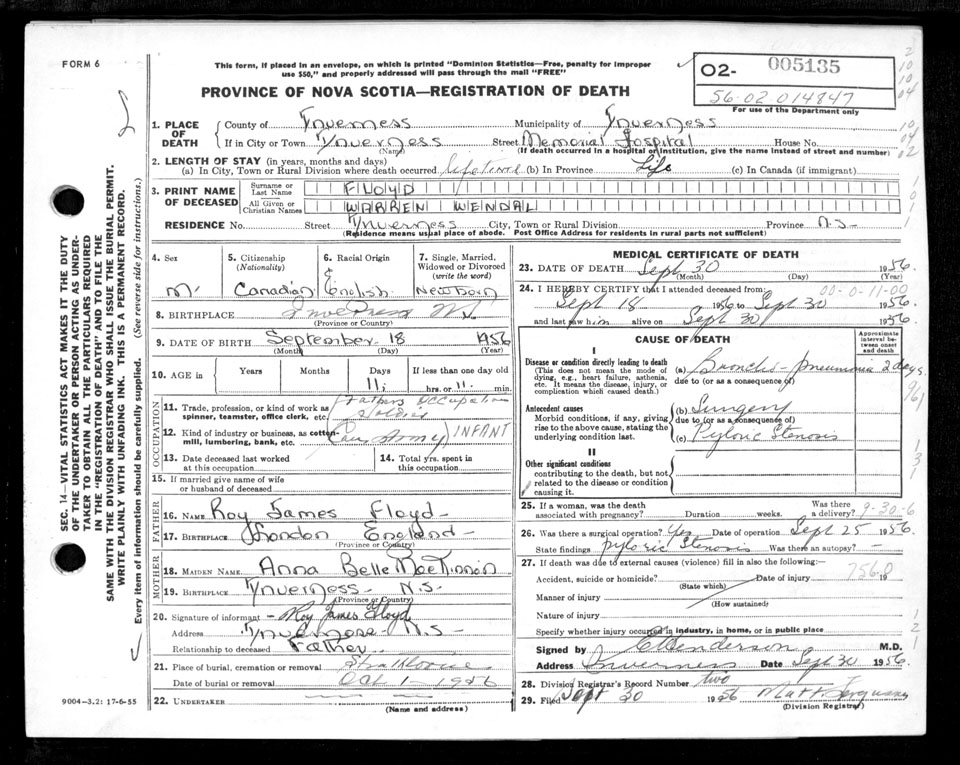 FORM 6
This form, if placed in an envelope, on which is printed "Dominion Statistics—Free, penalty for improper
use $50," and properly addressed will pass through the mail "FREE"
PROVINCE OF NOVA SCOTIA—REGISTRATION OF DEATH
02- 005135
56-02 014847
For use of the Department only
SEC. 14—VITAL STATISTICS ACT MAKES IT THE DUTY
OF THE UNDERTAKER OR PERSON ACTING AS UNDER-
TAKER TO OBTAIN ALL THE PARTICULARS REQUIRED
IN THE "REGISTRATION OF DEATH" AND TO FILE THE
SAME WITH THE DIVISION REGISTRAR WHO SHALL ISSUE THE BURIAL PERMIT.
WRITE PLAINLY WITH UNFADING INK. THIS IS A PERMANENT RECORD.
Every item of information should be carefully supplied. (See reverse side for instructions.)
1. PLACE OF DEATH
County of Inverness Municipality of Inverness
If in City or Town Inverness Street Memorial Hospital House No.
(Name) (If death occurred in a hospital or institution, give the name instead of street and number)
2. LENGTH OF STAY (in years, months and days)
(a) In City, Town or Rural Division where death occurred lifetime (b) In Province Life (c) In Canada (if immigrant)
3. PRINT NAME OF DECEASED
Surname or Last Name FLOYD
All Given or Christian Names WARREN WENDAL
RESIDENCE No. Street Inverness City, Town or Rural Division Province N.S.
(Residence means usual place of abode. Post Office Address for residents in rural parts not sufficient)
4. Sex 5. Citizenship (Nationality) 6. Racial Origin 7. Single, Married, Widowed or Divorced (write the word)
M. Canadian English Newborn
8. BIRTHPLACE Inverness N.S.
(Province or Country)
9. DATE OF BIRTH September 18 1956
(Month) (Day) (Year)
10. AGE IN Years Months Days If less than one day old
11 hrs. or 11 min.
OCCUPATION
11. Trade, profession, or kind of work as spinner, teamster, office clerk, etc. Fathers Occupation Soldier
12. Kind of industry or business, as cotton-mill, lumbering, bank, etc. Army INFANT
13. Date deceased last worked at this occupation
14. Total yrs. spent in this occupation
15. If married give name of wife or husband of deceased
FATHER
16. NAME Roy James Floyd
17. BIRTHPLACE London England
(Province or Country)
MOTHER
18. MAIDEN NAME Anna Belle MacKinnon
19. BIRTHPLACE Inverness N.S.
(Province or Country)
20. Signature of informant Roy James Floyd
Address Inverness N.S.
Relationship to deceased Father
21. Place of burial, cremation or removal Strathlorne
Date of burial or removal Oct 1 - 1956
22. UNDERTAKER
(Name and address)
9004—3.2: 17-6-55
MEDICAL CERTIFICATE OF DEATH
23. DATE OF DEATH Sept 30 1956
(Month) (Day) (Year)
24. I HEREBY CERTIFY that I attended deceased from: 00-0-11-00
Sept 18 1956 to Sept 30 1956
and last saw him alive on Sept 30 1956
CAUSE OF DEATH
Approximate interval between onset and death
I
Disease or condition directly leading to death
(This does not mean the mode of dying, e.g., heart failure, asthenia, etc. It means the disease, injury, or complication which caused death.)
(a) Broncho-pneumonia 2 days
due to (or as a consequence of)
Antecedent causes
Morbid conditions, if any, giving rise to the above cause, stating the underlying condition last.
(b) Surgery
due to (or as a consequence of)
(c) Pyloric Stenosis
II
Other significant conditions
contributing to the death, but not related to the disease or condition causing it.
25. If a woman, was the death associated with pregnancy? Duration weeks. Was there a delivery? 9-30-6
26. Was there a surgical operation? Yes Date of operation Sept 25 1956
State findings pyloric Stenosis Was there an autopsy? —
27. If death was due to external causes (violence) fill in also the following:—
Accident, suicide or homicide? Date of injury 19
(State which) 756.0
Manner of injury
(How sustained)
Nature of injury
Specify whether injury occurred in industry, in home, or in public place
Signed by Henderson M.D.
Address Inverness Date Sept 30 1956
28. Division Registrar's Record Number two
29. Filed Sept 30 1956 Matt Ferguson
(Division Registrar)